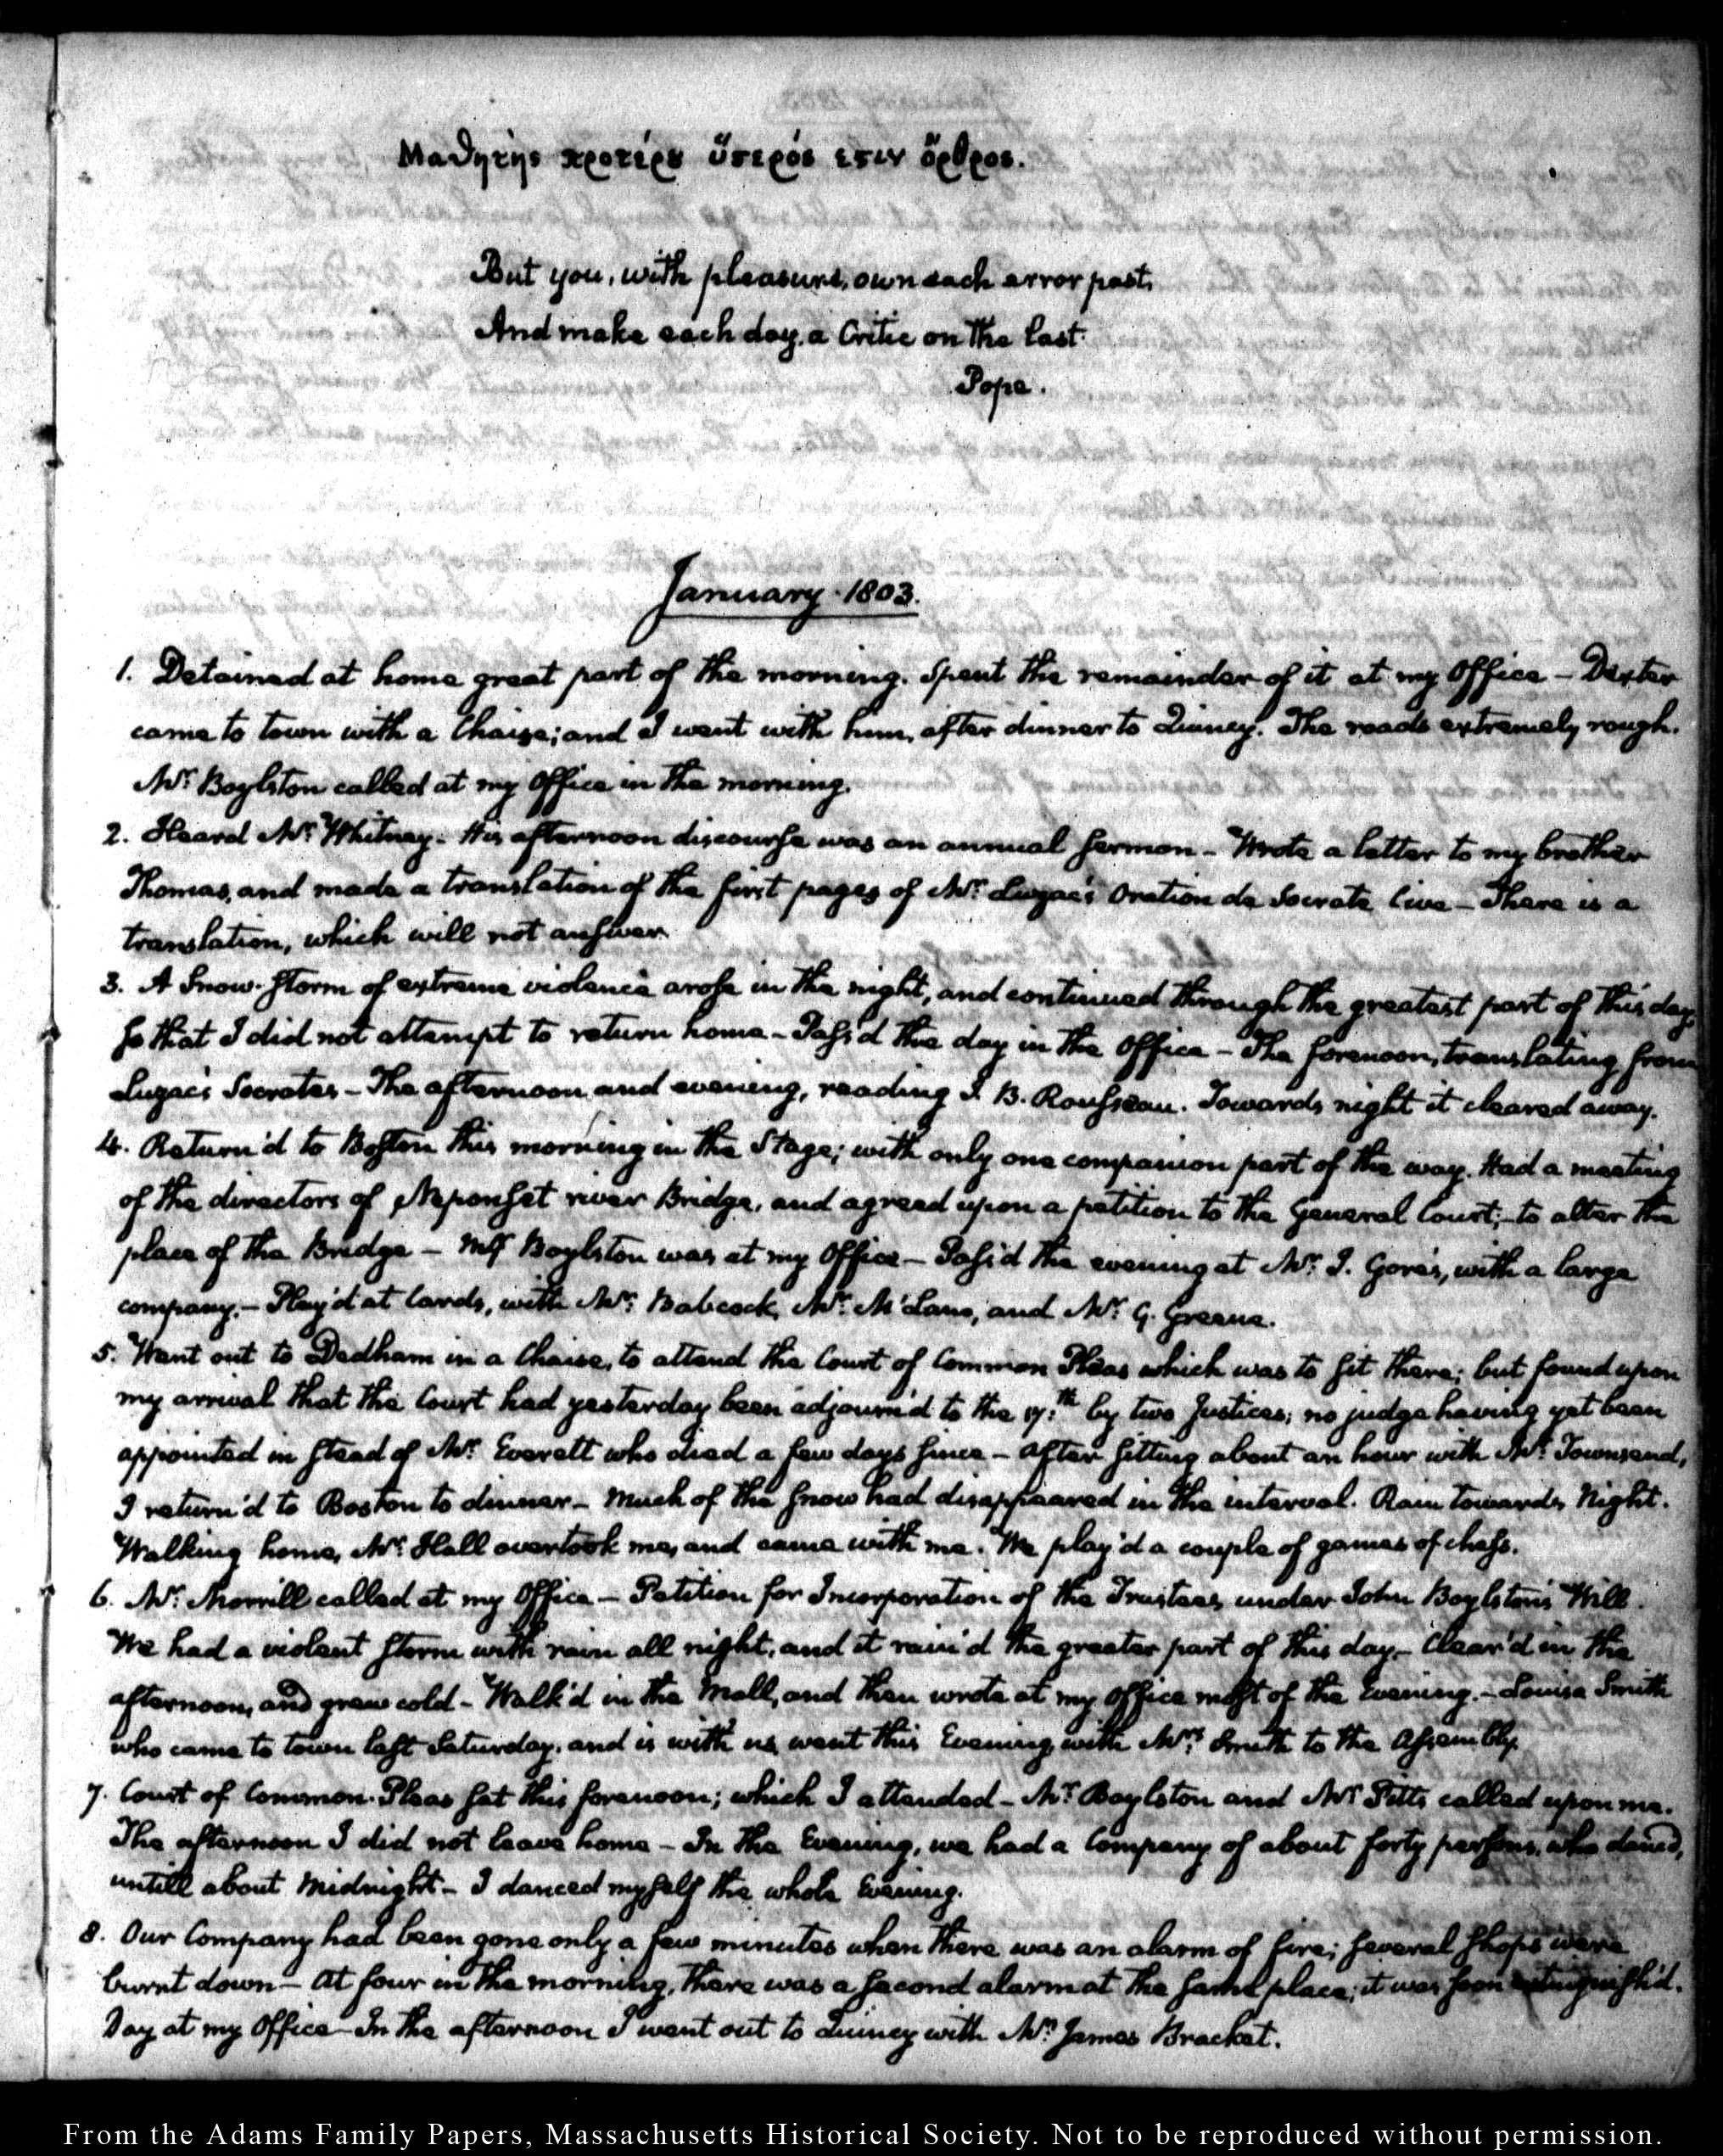 Μαθητὴς προτέρȣ ὕστερός εστιν ὄρθρος.
But you, with pleasure, own each error past,
And make each day, a Critic on the last.
Pope.
January. 1803.
1. Detained at home great part of the morning. Spent the remainder of it at my Office – Dexter
came to town with a Chaise; and I went with him, after dinner to Quincy. The roads extremely rough.
Mr. Boylston called at my Office in the morning.
2. Heard Mr. Whitney. His afternoon discourſe was an annual ſermon – Wrote a letter to my brother
Thomas, and made a translation of the first pages of Mr. Luzac's Oration de Socrate Cive – There is a
translation, which will not anſwer.
3. A Snow-ſtorm of extreme violence aroſe in the night, and continued through the greatest part of this day,
ſo that I did not attempt to return home – Paſs'd the day in the Office – The forenoon, translating from
Luzac's Socrates – The afternoon and evening, reading J. B. Rouſseau. Towards night it cleared away.
4. Return'd to Boſton this morning in the Stage; with only one companion part of the way. Had a meeting
of the directors of Neponſet river Bridge, and agreed upon a petition to the General Court; to alter the
place of the Bridge – Boylston was at my Office – Paſs'd the evening at Mr. J. Gore's, with a large
company. – Play'd at Cards, with Mr. Babcock, Mr. McLane, and Mr. G. Greene.
5. Went out to Dedham in a Chaise, to attend the Court of Common Pleas which was to ſit there; but found upon
my arrival that the Court had yesterday been adjourn'd to the 17th. by two Justices; no judge having yet been
appointed in ſtead of Mr. Everett who died a few days ſince – After ſitting about an hour with Mr. Townsend,
I return'd to Boston to dinner – Much of the ſnow had disappeared in the interval. Rain towards Night.
Walking home, Mr. Hall overtook me, and came with me. We play'd a couple of games of cheſs.
6. Mr. Morrill called at my Office – Petition for Incorporation of the Trustees under John Boylston's Will.
We had a violent ſtorm with rain all night, and it rain'd the greater part of this day – Clear'd in the
afternoon, and grew cold – Walk'd in the Mall, and then wrote at my Office moſt of the Evening. – Louisa Smith
who came to town laſt Saturday, and is with us, went this Evening with Mrs. Smith to the Aſsembly.
7. Court of Common-Pleas ſat this forenoon; which I attended – Mr. Boylston and Mr. Pitts called upon me.
The afternoon I did not leave home – In the Evening, we had a Company of about forty perſons, who danced,
untill about Midnight – I danced myſelf the whole Evening.
8. Our Company had been gone only a few minutes when there was an alarm of fire; ſeveral ſhops were
burnt down – At four in the morning, there was a ſecond alarm at the ſame place; it was ſoon extinguiſh'd.
Day at my Office – In the afternoon I went out to Quincy with Mr. James Bracket.
From the Adams Family Papers, Massachusetts Historical Society. Not to be reproduced without permission.